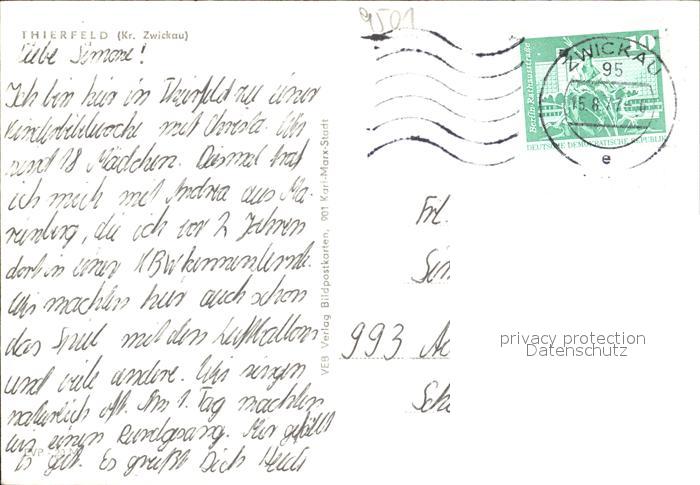 9501
THIERFELD (Kr. Zwickau)
Liebe Simone!
Ich bin hier in Thierfeld zu einer
Kinderbibelwoche mit Christa. Wir
sind 18 Mädchen. Diesmal traf
ich mich mit Andrea aus Ma-
rienberg, die ich vor 2 Jahren
dort in einer KBW kennenlernte.
Wir machten hier auch schon
das Spiel mit den Luftballons
und viele andere. Wir singen
natürlich oft. Am 1. Tag machten
wir einen Rundgang. Mir gefällt
es gut. Es grüßt Dich Heidi
VEB Verlag Bildpostkarten, 901 Karl-Marx-Stadt
Berlin, Rathausstraße
10
DEUTSCHE DEMOKRATISCHE REPUBLIK
ZWICKAU
95
15.8.77
e
Frl.
Sim
993 Ad
Sch
privacy protection
Datenschutz